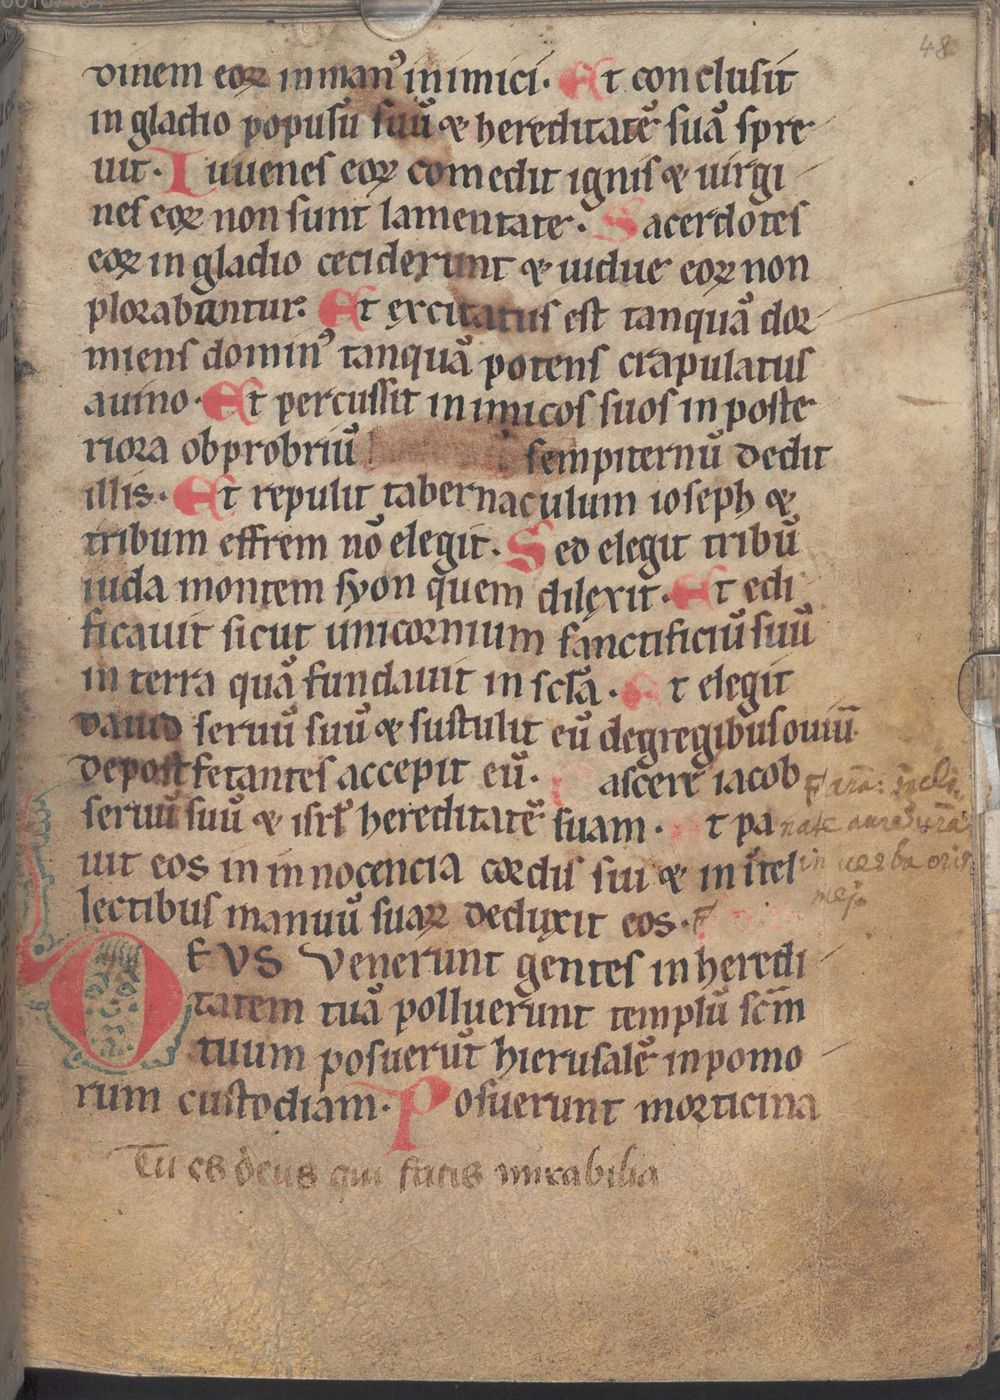 48
dinem eoꝝ in manꝰ inimici. Et conclusit
in gladio popusū suū & hereditatē suā spre
uit. Iuuenes eoꝝ comedit ignis & uirgi
nes eoꝝ non sunt lamentate. Sacerdotes
eoꝝ in gladio ceciderunt & uidue eoꝝ non
plorabuntur. Et excitatus est tanquā dor
miens dominꝰ tanquā potens crapulatus
auino. Et percussit inimicos suos in poste
riora obprobriū sempiternū dedit
illis. Et repulit tabernaculum ioseph &
tribum effrem nō elegit. Sed elegit tribū
iuda montem syon quem dilexit. Et edi
ficauit sicut unicornium sanctificiū suū
in terra quā fundauit in scl̄a. Et elegit
dauid seruū suū & sustulit eū degregibus ouiū
depost fetantes accepit eū. ascere iacob
seruū suū & isrl̄ hereditatē suam. t pa
uit eos in innocencia cordis sui & in ītel
lectibus manuū suaꝝ deduxit eos.
in uerba oris
mej.
DEVS Venerunt gentes in heredi
tatem tuā polluerunt templū scm̄
tuum posuerūt hierusalē in pomo
rum custodiam. Posuerunt morticina
Tu es deus qui facis mirabilia